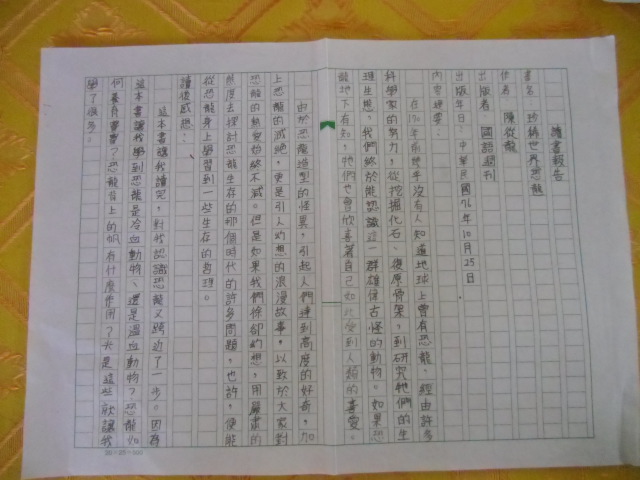 讀書報告
書名：珍稀世界恐龍
作者：陳從龍
出版者：國語週刊
出版年日：中華民國76年10月25日
內容提要：
在170年前幾乎沒有人知道地球上曾有恐龍，經由許多
科學家的努力，從挖掘化石、復原骨架，到研究牠們的生
理生態，我們終於能認識這一群雄偉古怪的動物。如果恐
龍地下有知，牠們也會欣喜著自己如此受到人類的喜愛。
由於恐龍造型的怪異，引起人們達到高度的好奇，加
上恐龍的滅絕，更是引人幻想的浪漫故事，以致於大家對
恐龍的熱愛始終不減。但是如果我們除卻幻想，用嚴肅的
態度去探討恐龍生存的那個時代的許多問題，也許，便能
從恐龍身上學習到一些生存的哲理。
讀後感想：
這本書讓我讀完，對我認識恐龍又跨近了一步。因為
這本書讓我學到恐龍是冷血動物、還是溫血動物？恐龍如
何養育寶寶？恐龍背上的帆有什麼作用？光是這些就讓我
學了很多。